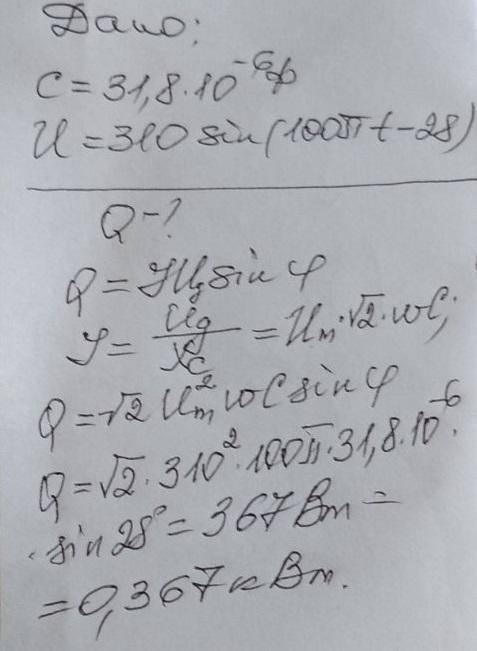 Дано:
C = 31,8·10⁻⁶ф
U = 310 sin(100πt - 28)
Q - ?
Q = IUд sin φ
I = Uд / Xc = Um·√2·ωC;
Q = √2 Um² ωC sin φ
Q = √2·310²·100π·31,8·10⁻⁶·
· sin 28° = 367 Вт =
= 0,367 кВт.